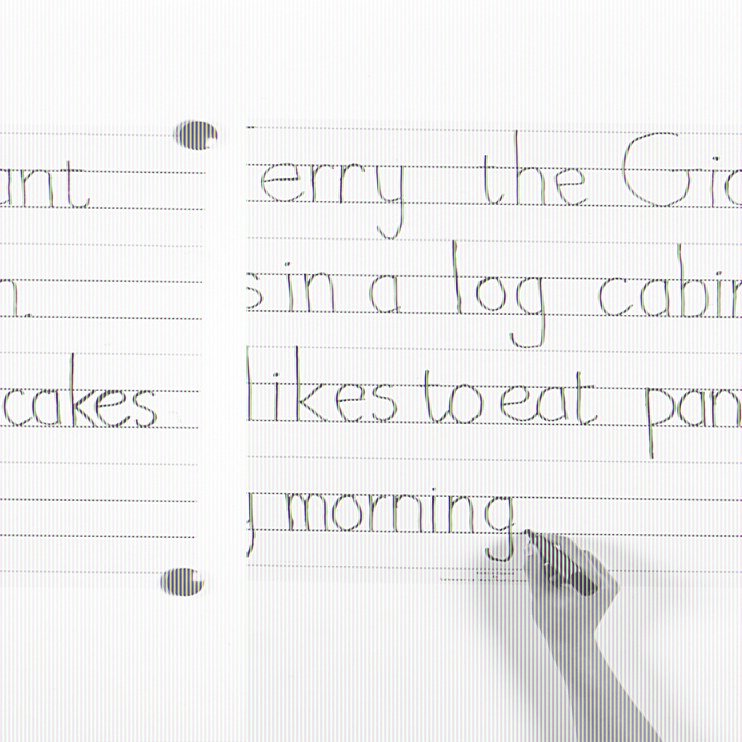 ant
n.
cakes
erry the Gia
s in a log cabin
likes to eat pan
g morning